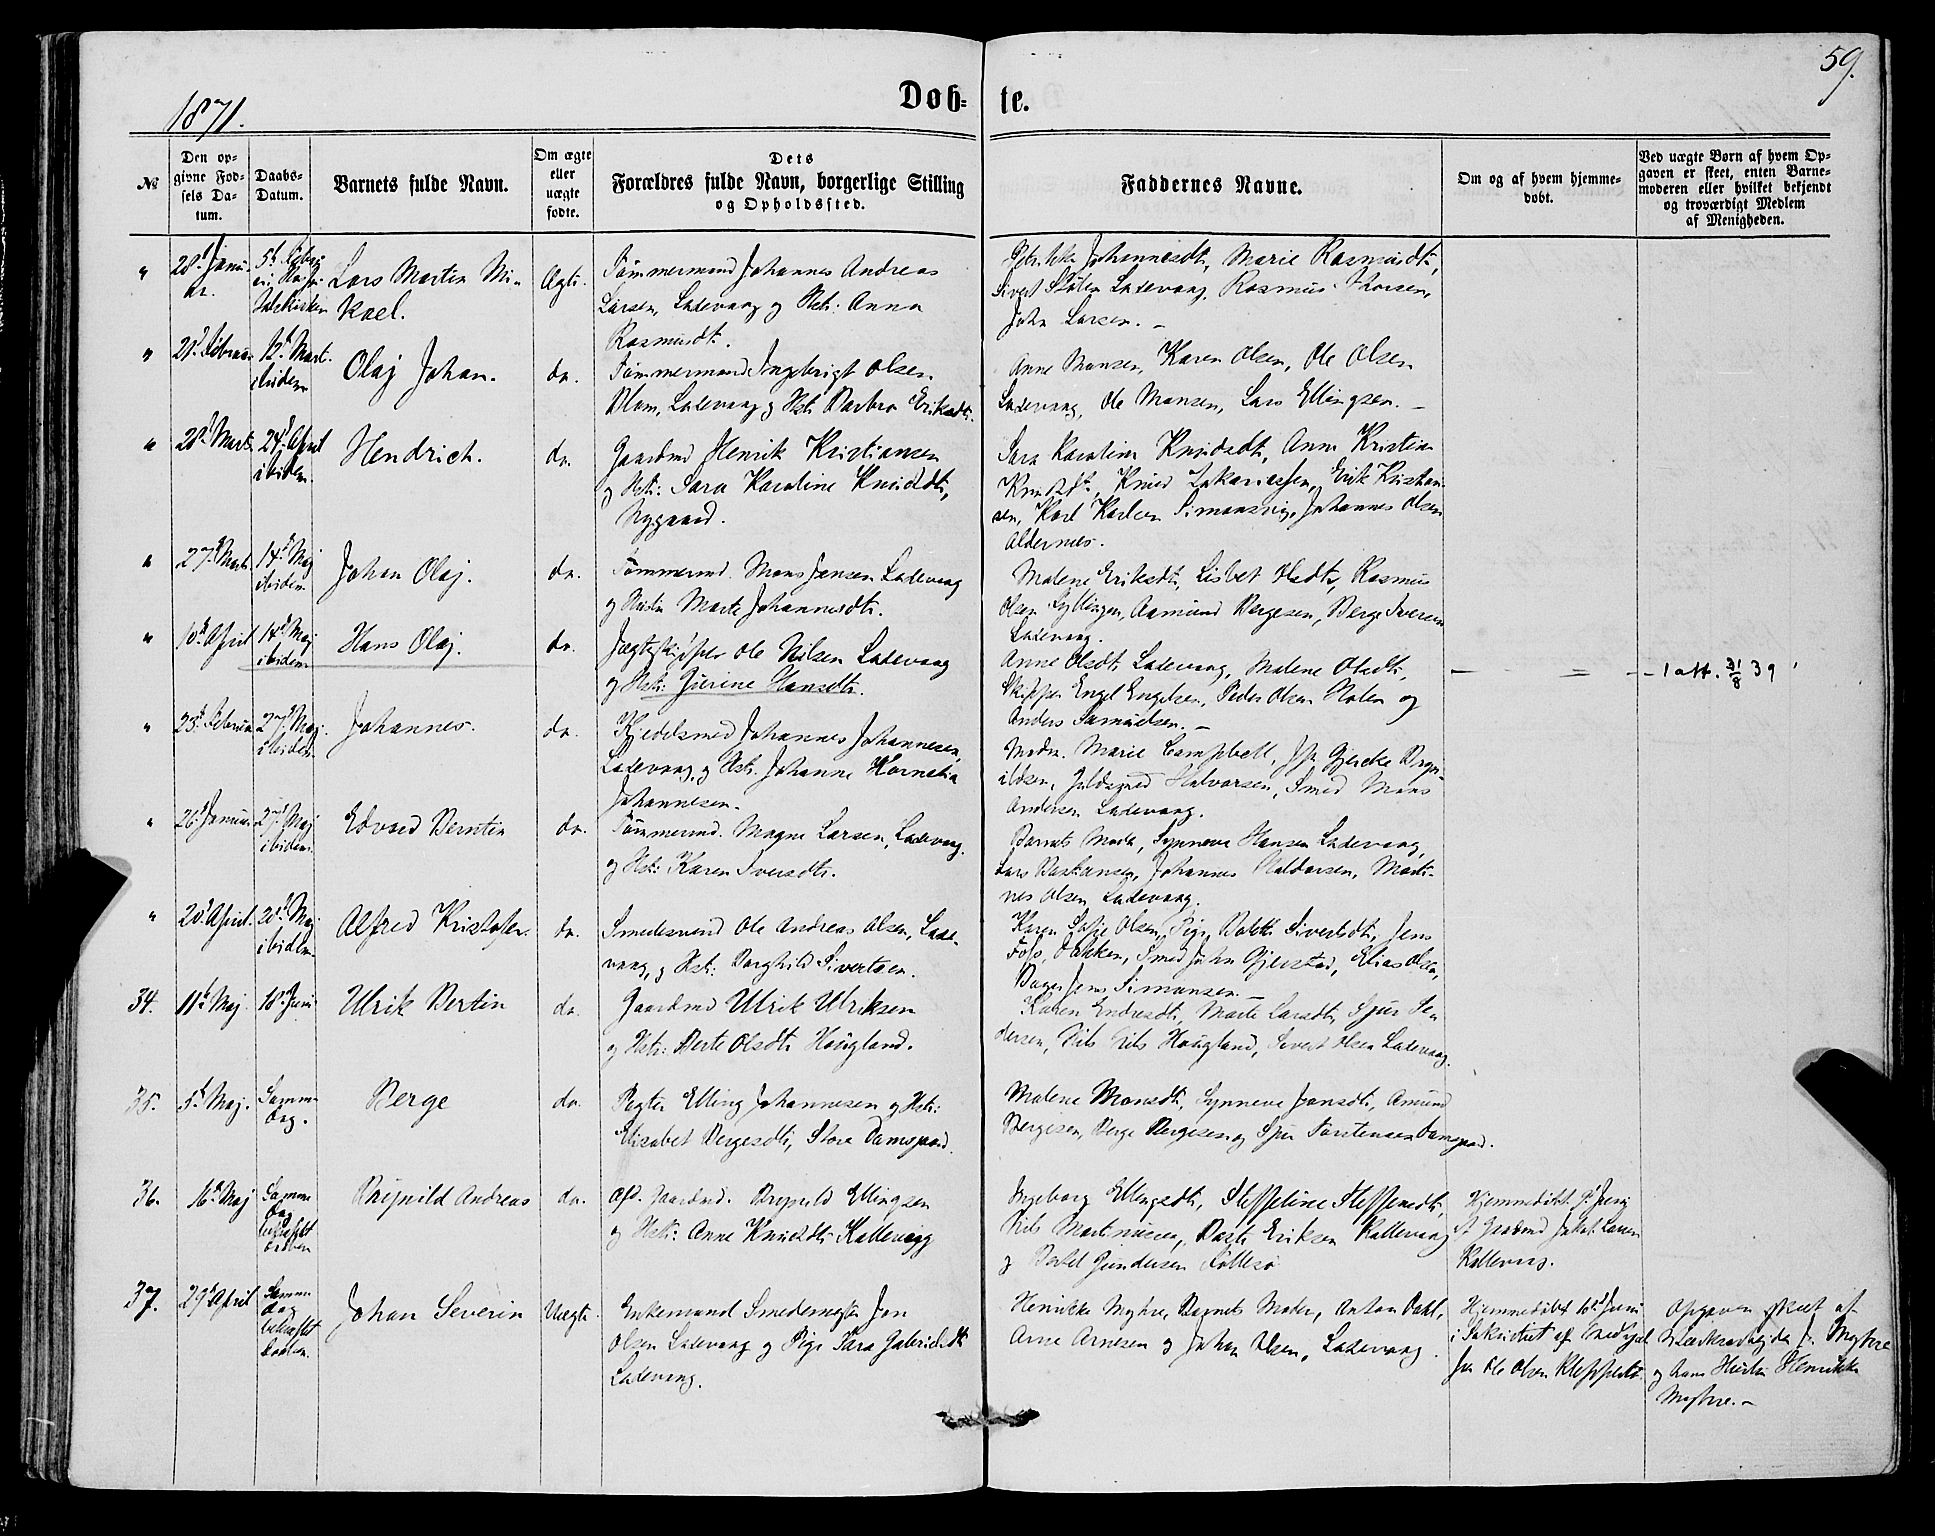 59.
1871.
Døb- te.
№
Den op-
givne Fød-
sels Da-
tum.
Daabs-
Datum.
Barnets fulde Navn.
Om ægte
eller
uægte
fødte.
Dets
Forældres fulde Navn, borgerlige Stilling
og Opholdssted.
Faddernes Navne.
Om og af hvem hjemme-
døbt.
Ved uægte Børn af hvem Op-
gaven er skeet, enten Barne-
moderen eller hvilket bekjendt
og troværdigt Medlem
af Menigheden.
" 28d Janu-
ar.
5t Febr.
Lars Martin Mi-
kael.
Ægte.
Tømmermand Johannes Andreas
Larsen, Ladevaag og Hstr: Anna
Rasmusdt.
Johannesdt, Marie Rasmusdt,
Sivert Ladevaag, Rasmus Thorsen,
John Larsen. –
" 21d Februar 12t Mart.
ibidem
Olaj Johan.
do.
Tømmermand Ingebrigt Olsen
Blom, Ladevaag og Hstr Barbro Eriksdt.
Anne Monsen, Karen Olsen, Ole Olsen
Ladevaag, Ole Monsen, Lars Ellingsen. –
" 28d Marts 24d April
ibidem.
Hendrich.
do.
Gaardmd Henrik Kristiansen
og Hstr: Sara Karoline Knudsdt,
Nygaard.
Sara Karoline Knudsdt, Anne Kristine
Knudsdt, Knud Zakariassen, Erik Kristian-
sen, Karl Karlsen Simonsvig, Johannes Olsen
Aldernes.
" 27d Marts 14d Maj
ibidem
Johan Olaj.
do.
Tømmermd. Mons Jensen Ladevaag
og Hustru Marte Johannesdt.
Malene Eriksdt, Lisbet Olsdt, Rasmus
Olsen Lyttingen, Aamund Bergesen, Berge Iversen
Ladevaag.
" 10d April 14d Maj
ibidem
Hans Olaj.
do.
Jægteskipper Ole Nilsen Ladevaag
og Hstr: Jurine Hansdt.
Anne Olsdt Ladevaag, Malene Olsdt,
Skipper Engel Engelsen, Peder Olsen Holen og
Anders Samuelsen. –
– = – 1 att. 31/8 39
" 23d Februar 27d Maj
ibidem
Johannes.
do.
Kjedelsmed Johannes Johannesen,
Ladevaag, og Hstr. Johanne Kornelia
Johannesen.
Madm. Marie Campbell, Jfr. Gjercke Bryn-
ildsen, Guldsmed Halvorsen, Smed Mons
Andersen Ladevaag.
" 26d Januar 27d Maj
ibidem
Edvard Berntin
do.
Tømmermd. Magne Larsen, Ladevaag.
og Hstr: Karen Iversdt.
Barnets Moder, Synneve Hansen Ladevaag,
Lars Bastiansen, Johannes Haldorsen, Marti-
nus Olsen Ladevaag.
" 20d April 28d Maj
ibidem
Alfred Kristofer.
do.
Smedesvend Ole Andreas Olsen, Lade-
vaag, og Hstr: Borghild Sivertsen.
Karen Olsen, Pige Sivertsdt, Jens
Foss, Smed John Gjerstad, Elias Olsen,
Bager Jens Simonsen. –
34. 11t Maj. 18d Juni
Ulrik Bertin
do.
Gaardmd Ulrik Ulriksen
og Hstr: Berte Olsdt Hougland.
Karen Endresdt, Marte Larsdt, Sjur Se-
versen, Nils Nils Hougland, Sivert Olsen Ladevaag.
35. 5t Maj. Samme
Dag.
Berge
do.
Pagter Elling Johannesen og Hstr:
Elisabet Bergesdt, Store Damsgaard.
Malene Monsdt, Synneve Jonsdt, Amund
Bergesen, Berge Bergesen og Sjur Torstensen Damsgaard.
36. 16d Maj Samme
Dag
Brynild Andreas
do.
Gaardmd. Brynild Ellingsen
og Hstr: Anne Knudsdt Kallevaag
Ingeborg Ellingsdt, Steffeline Steffensdt,
Nils Martinusen, Eriksen Kallevaag
og Bertel Gundersen Follesø
Hjemmedøbt Juni
af Gaardmd Jakob Larsen
Kallevaag.
37. 29d April Samme
Dag
bekræftet
Daaben.
Johan Severin
Uægte.
Enkemand Smedemester Jon
Olsen Ladevaag og Pige Sara Gabrielsdt
Ladevaag.
Henrikke Myhre, Barnets Moder, Anton Dahl,
Arne Arnesen og Johan Olsen, Ladevaag.
Hjemmedøbt 10d Juni
i Sakristiet af Medhjæl-
per Ole Olsen Kleppestø
Opgaven skeet af
Værksarbeider J. Myhre
og hans Hustru Henrikke
Myhre. –